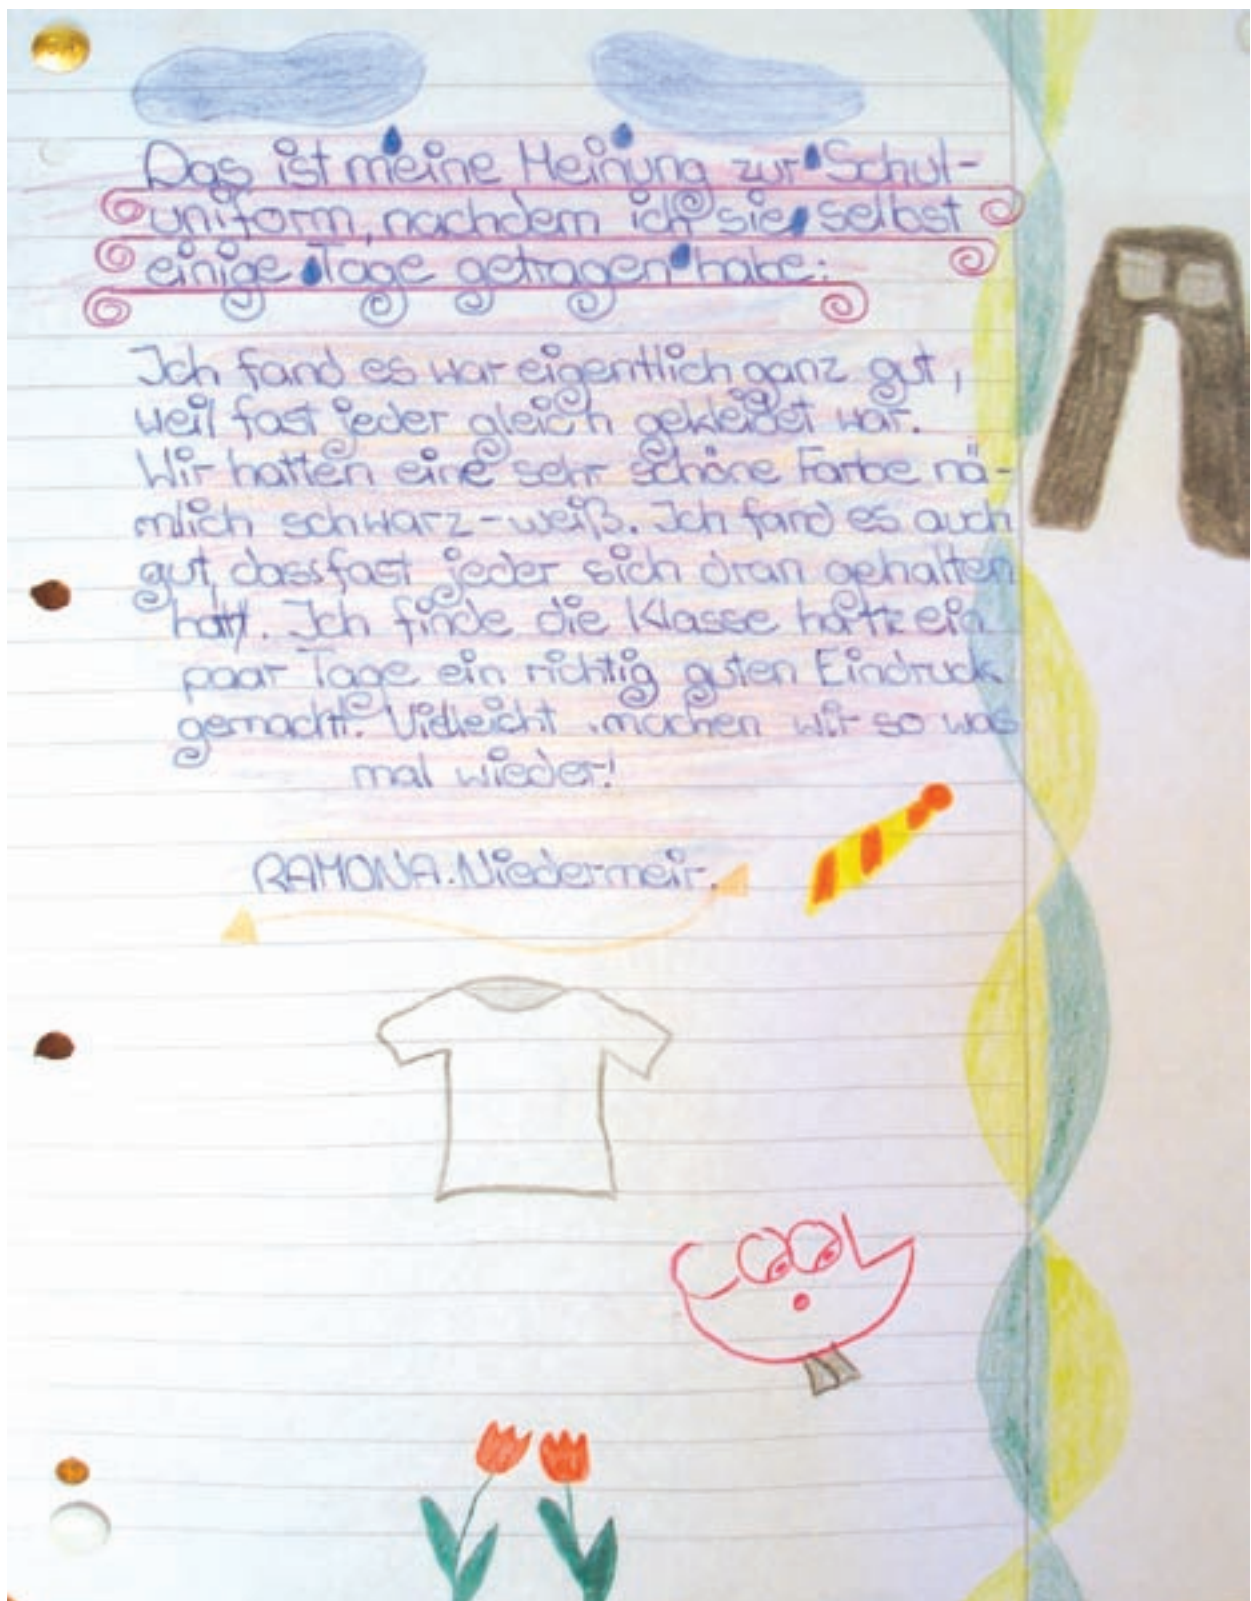 Das ist meine Meinung zur Schul-
uniform, nachdem ich sie selbst
einige Tage getragen habe:
Ich fand es war eigentlich ganz gut,
weil fast jeder gleich gekleidet war.
Wir hatten eine sehr schöne Farbe nä-
mlich schwarz-weiß. Ich fand es auch
gut, dass fast jeder sich dran gehalten
hatt. Ich finde die Klasse hatte ein
paar Tage ein richtig guten Eindruck
gemacht. Vielleicht machen wir so was
mal wieder!
RAMONA.Niedermeir.
COOL